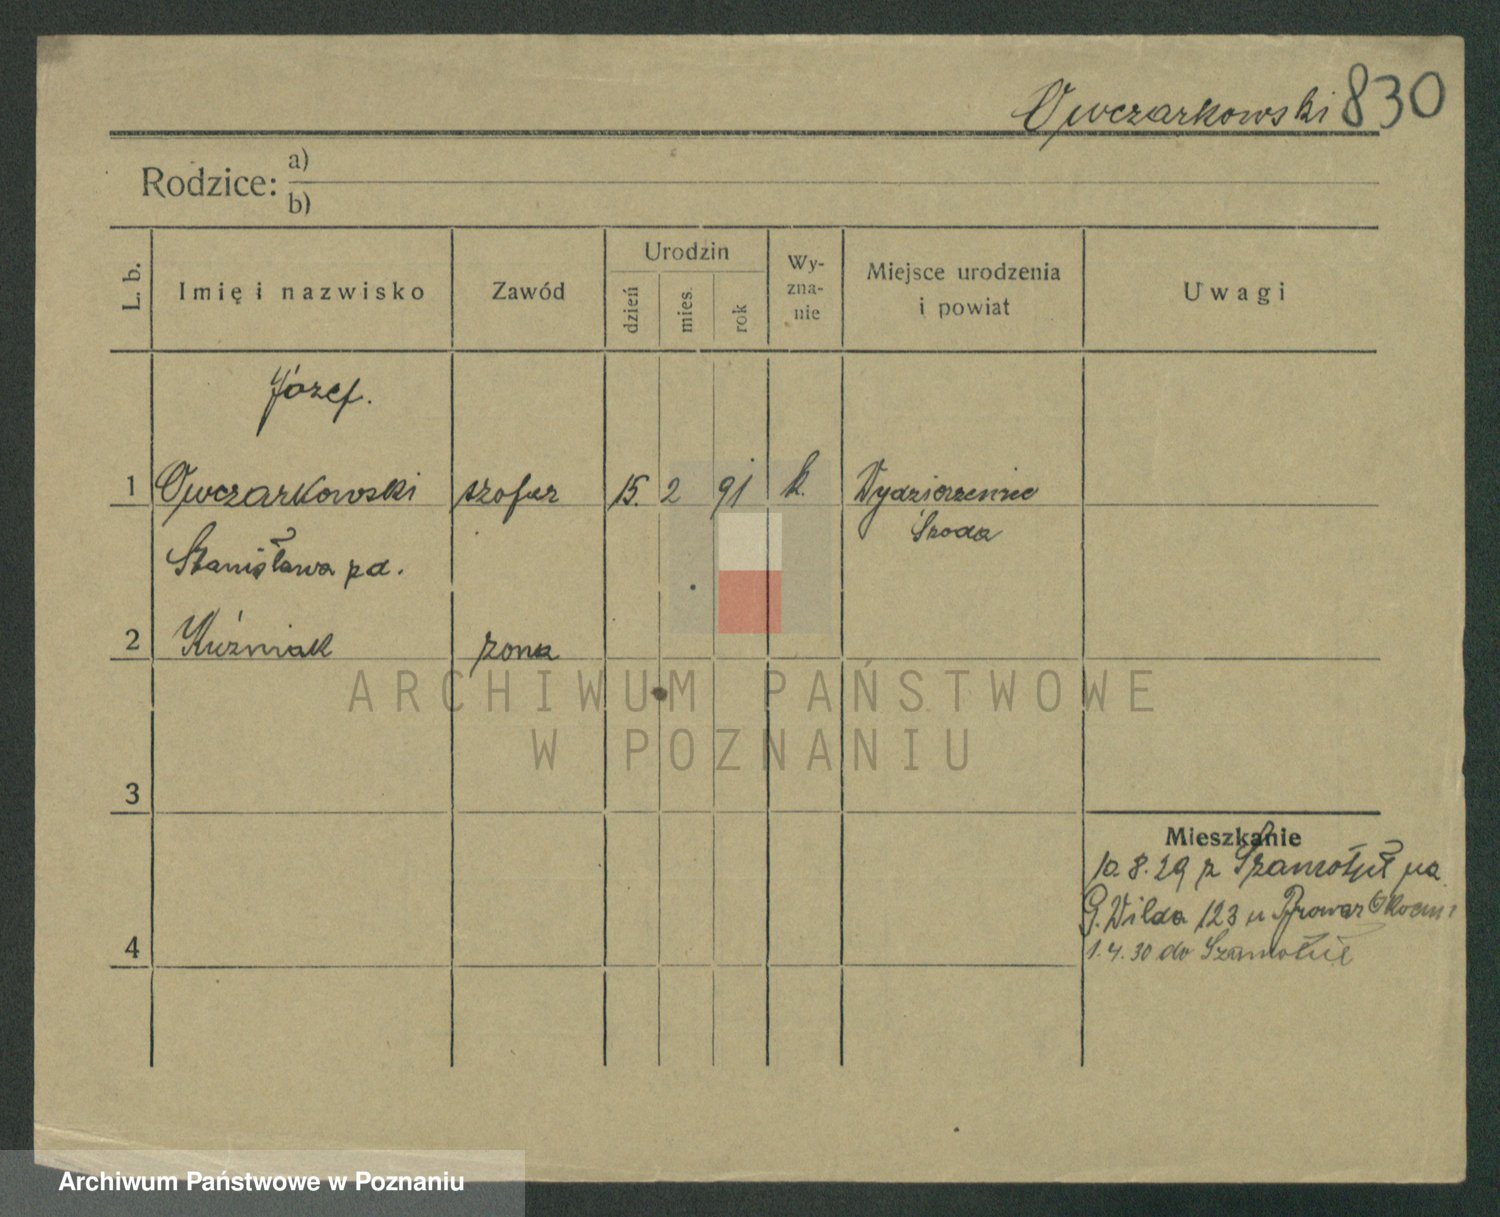 Owczarkowski 830
Rodzice: a)
b)
L. b.
Imię i nazwisko
Zawód
Urodzin
dzień
mies.
rok
Wy-
zna-
nie
Miejsce urodzenia
i powiat
Uwagi
Józef.
1 Owczarkowski szofer 15. 2 91 k.
Środa
Stanisława zd.
2 Kuźniak żona
ARCHIWUM PAŃSTWOWE
W POZNANIU
3
Mieszkanie
10.8.29 z Szamotuł na
G. Wilda 123 u Browar
4
1.4.30 do Szamotuł
Archiwum Państwowe w Poznaniu